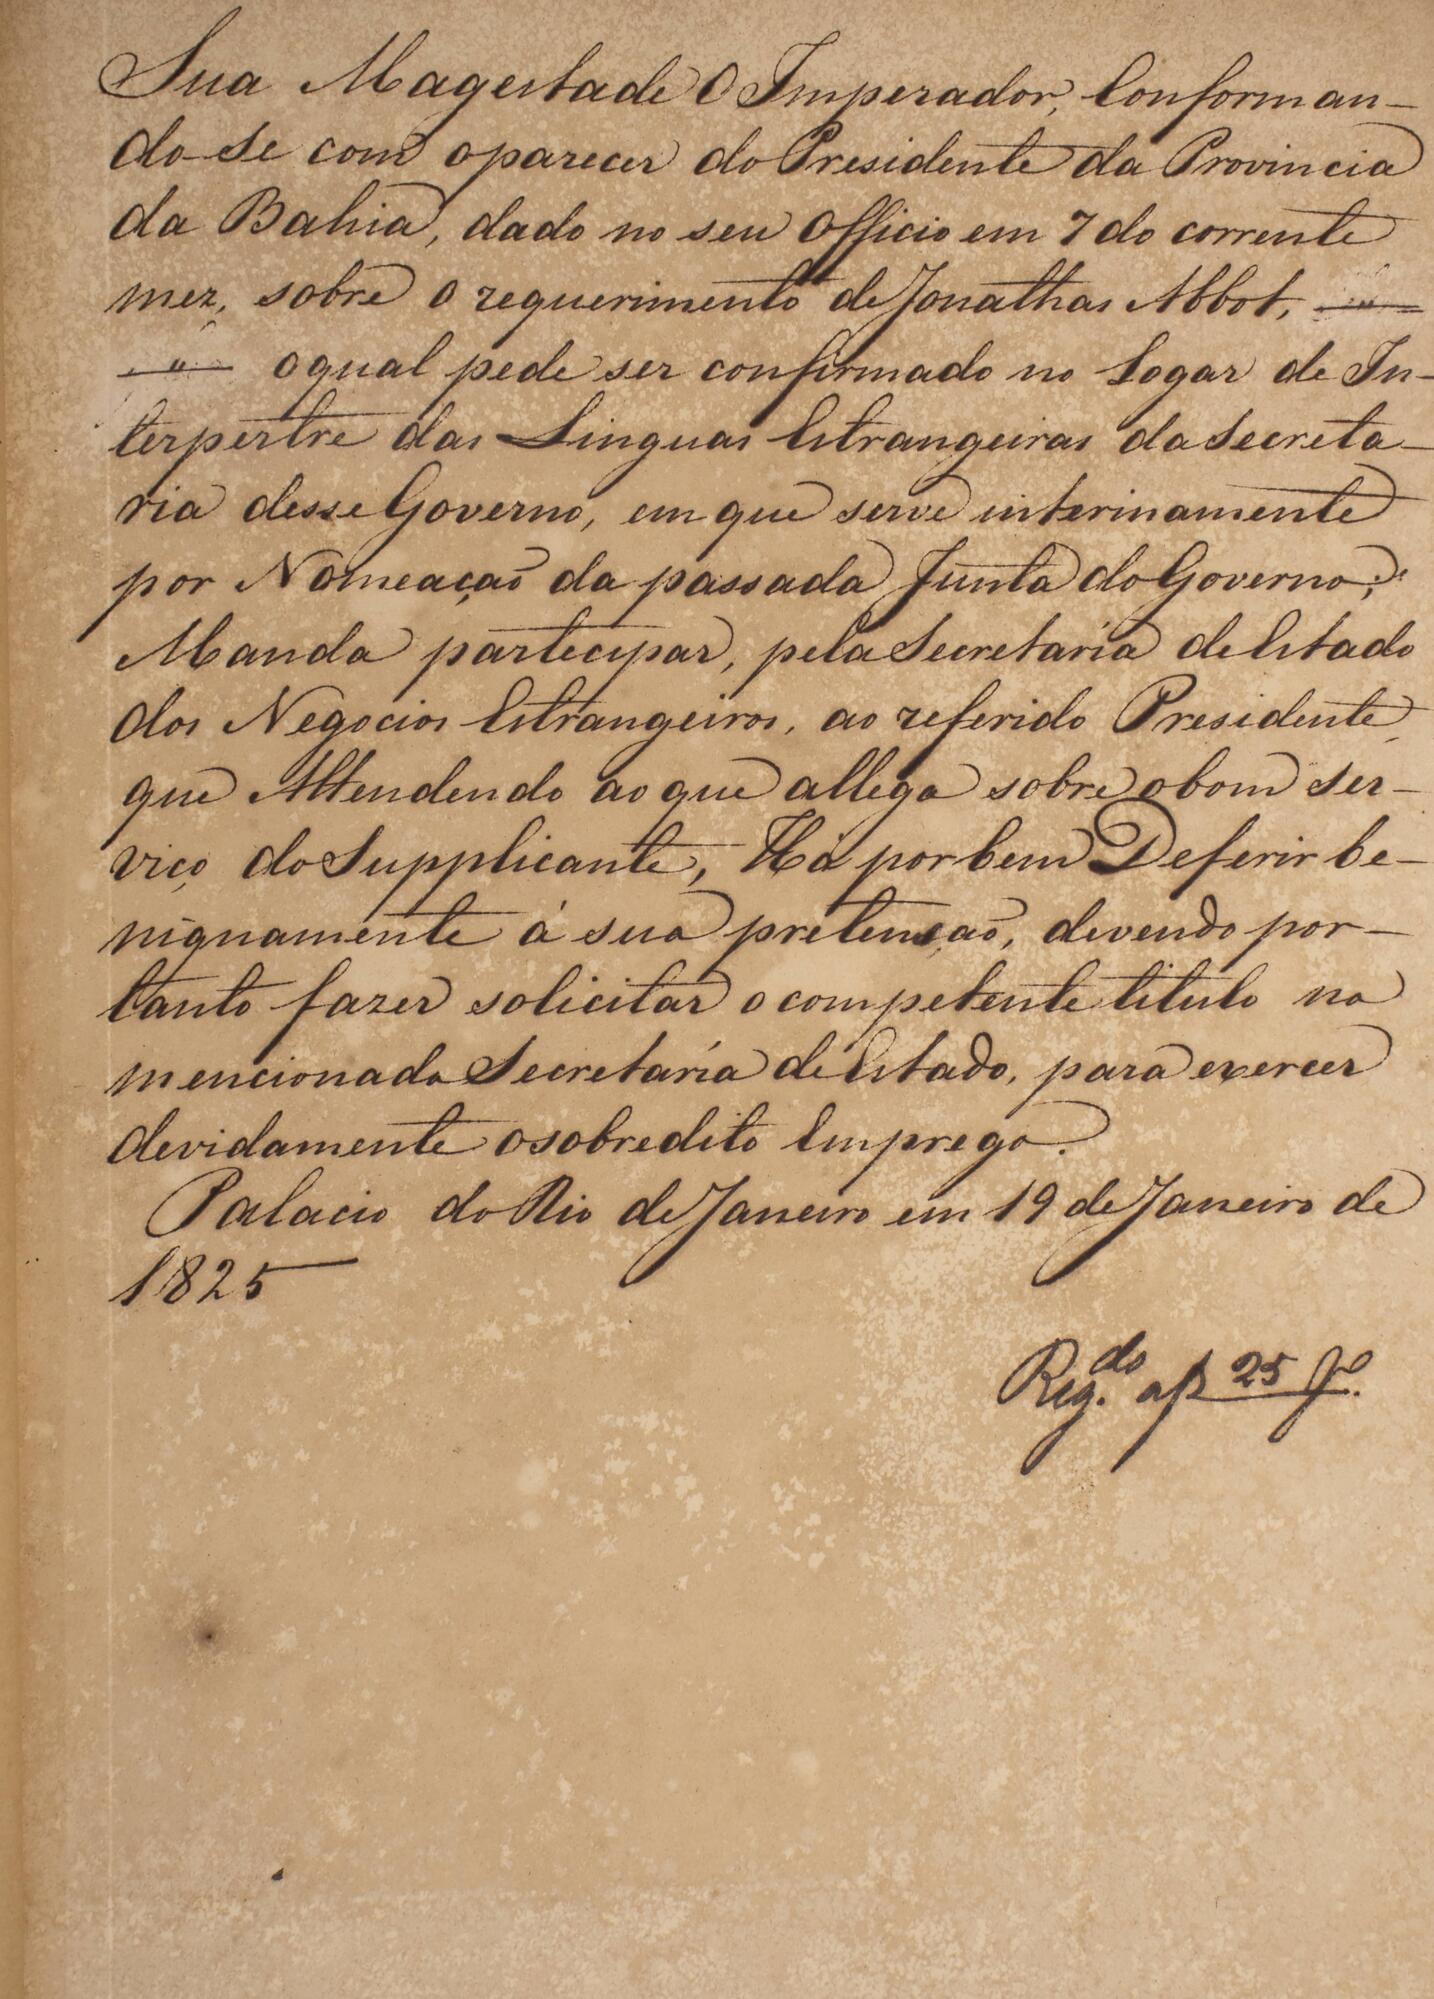 Sua Magestade O Imperador, Conforman-
do-se com o parecer do Presidente da Provincia
da Bahia, dado no seu Officio em 7 do corrente
mez, sobre o requerimento de Jonathas Abbot, — " —
— " — o qual pede ser confirmado no Logar de In-
terpertre das Linguas Estrangeiras da Secreta-
ria desse Governo, em que serve interinamente
por Nomeação da passada Junta do Governo;
Manda partecipar, pela Secretaría de Estado
dos Negocios Estrangeiros, ao referido Presidente,
que Attendendo ao que allega sobre o bom ser-
viço do Supplicante, Há por bem Deferir be-
nignamente á sua pretenção, devendo por-
tanto fazer solicitar o competente titulo na
mencionada Secretaría de Estado, para exercer
devidamente o sobredito Emprego.
Palacio do Rio de Janeiro em 19 de Janeiro de
1825
Reg.do a f 25